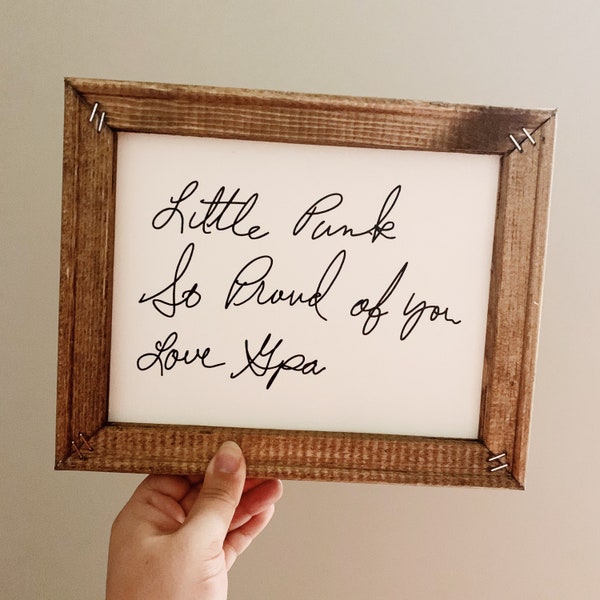 Little Punk
So Proud of you
Love Gpa